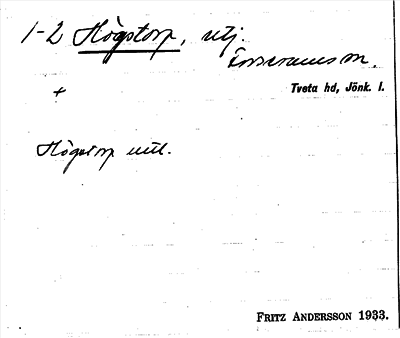 1-2 Högstorp, utj.
Forserums sn.
+
Tveta hd, Jönk. l.
Högstorp utl.
FRITZ ANDERSSON 1933.